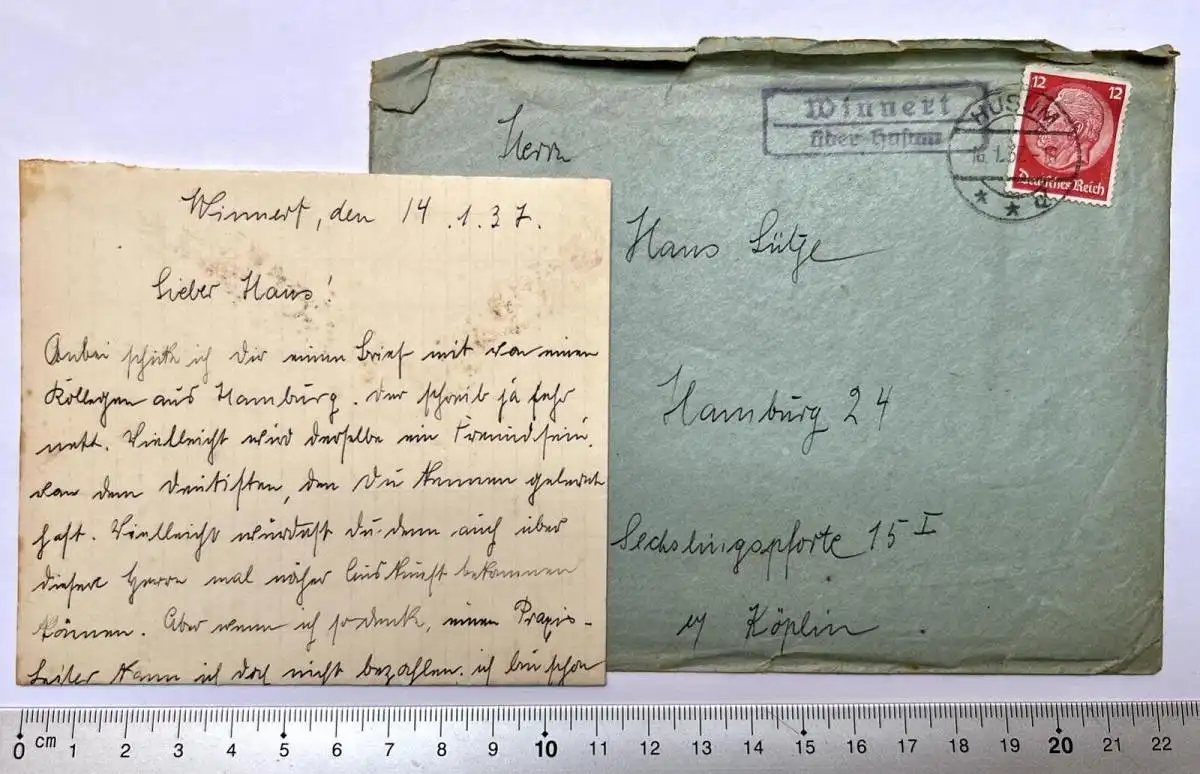 Winnert, den 14.1.37.
Lieber Hans!
Anbei schicke ich Dir einen Brief mit von einen
Kollegen aus Hamburg. Der schreib ja sehr
nett. Vielleicht wird derselbe ein Freund sein,
von dem Dentisten, den Du kennen gelernt
hast. Vielleicht würdest du denn auch über
diesen Herrn mal näher Auskunft bekommen
können. Aber wenn ich so denk, einen Praxis-
leiter kann ich doch nicht bezahlen. ich bin schon
Winnert
über Husum
HUSUM
12 12
Deutsches Reich
* * a
Herrn
Hans Lütje
Hamburg 24
Sechslingspforte 15 I
b/ Köplin
0 cm 1 2 3 4 5 6 7 8 9 10 11 12 13 14 15 16 17 18 19 20 21 22